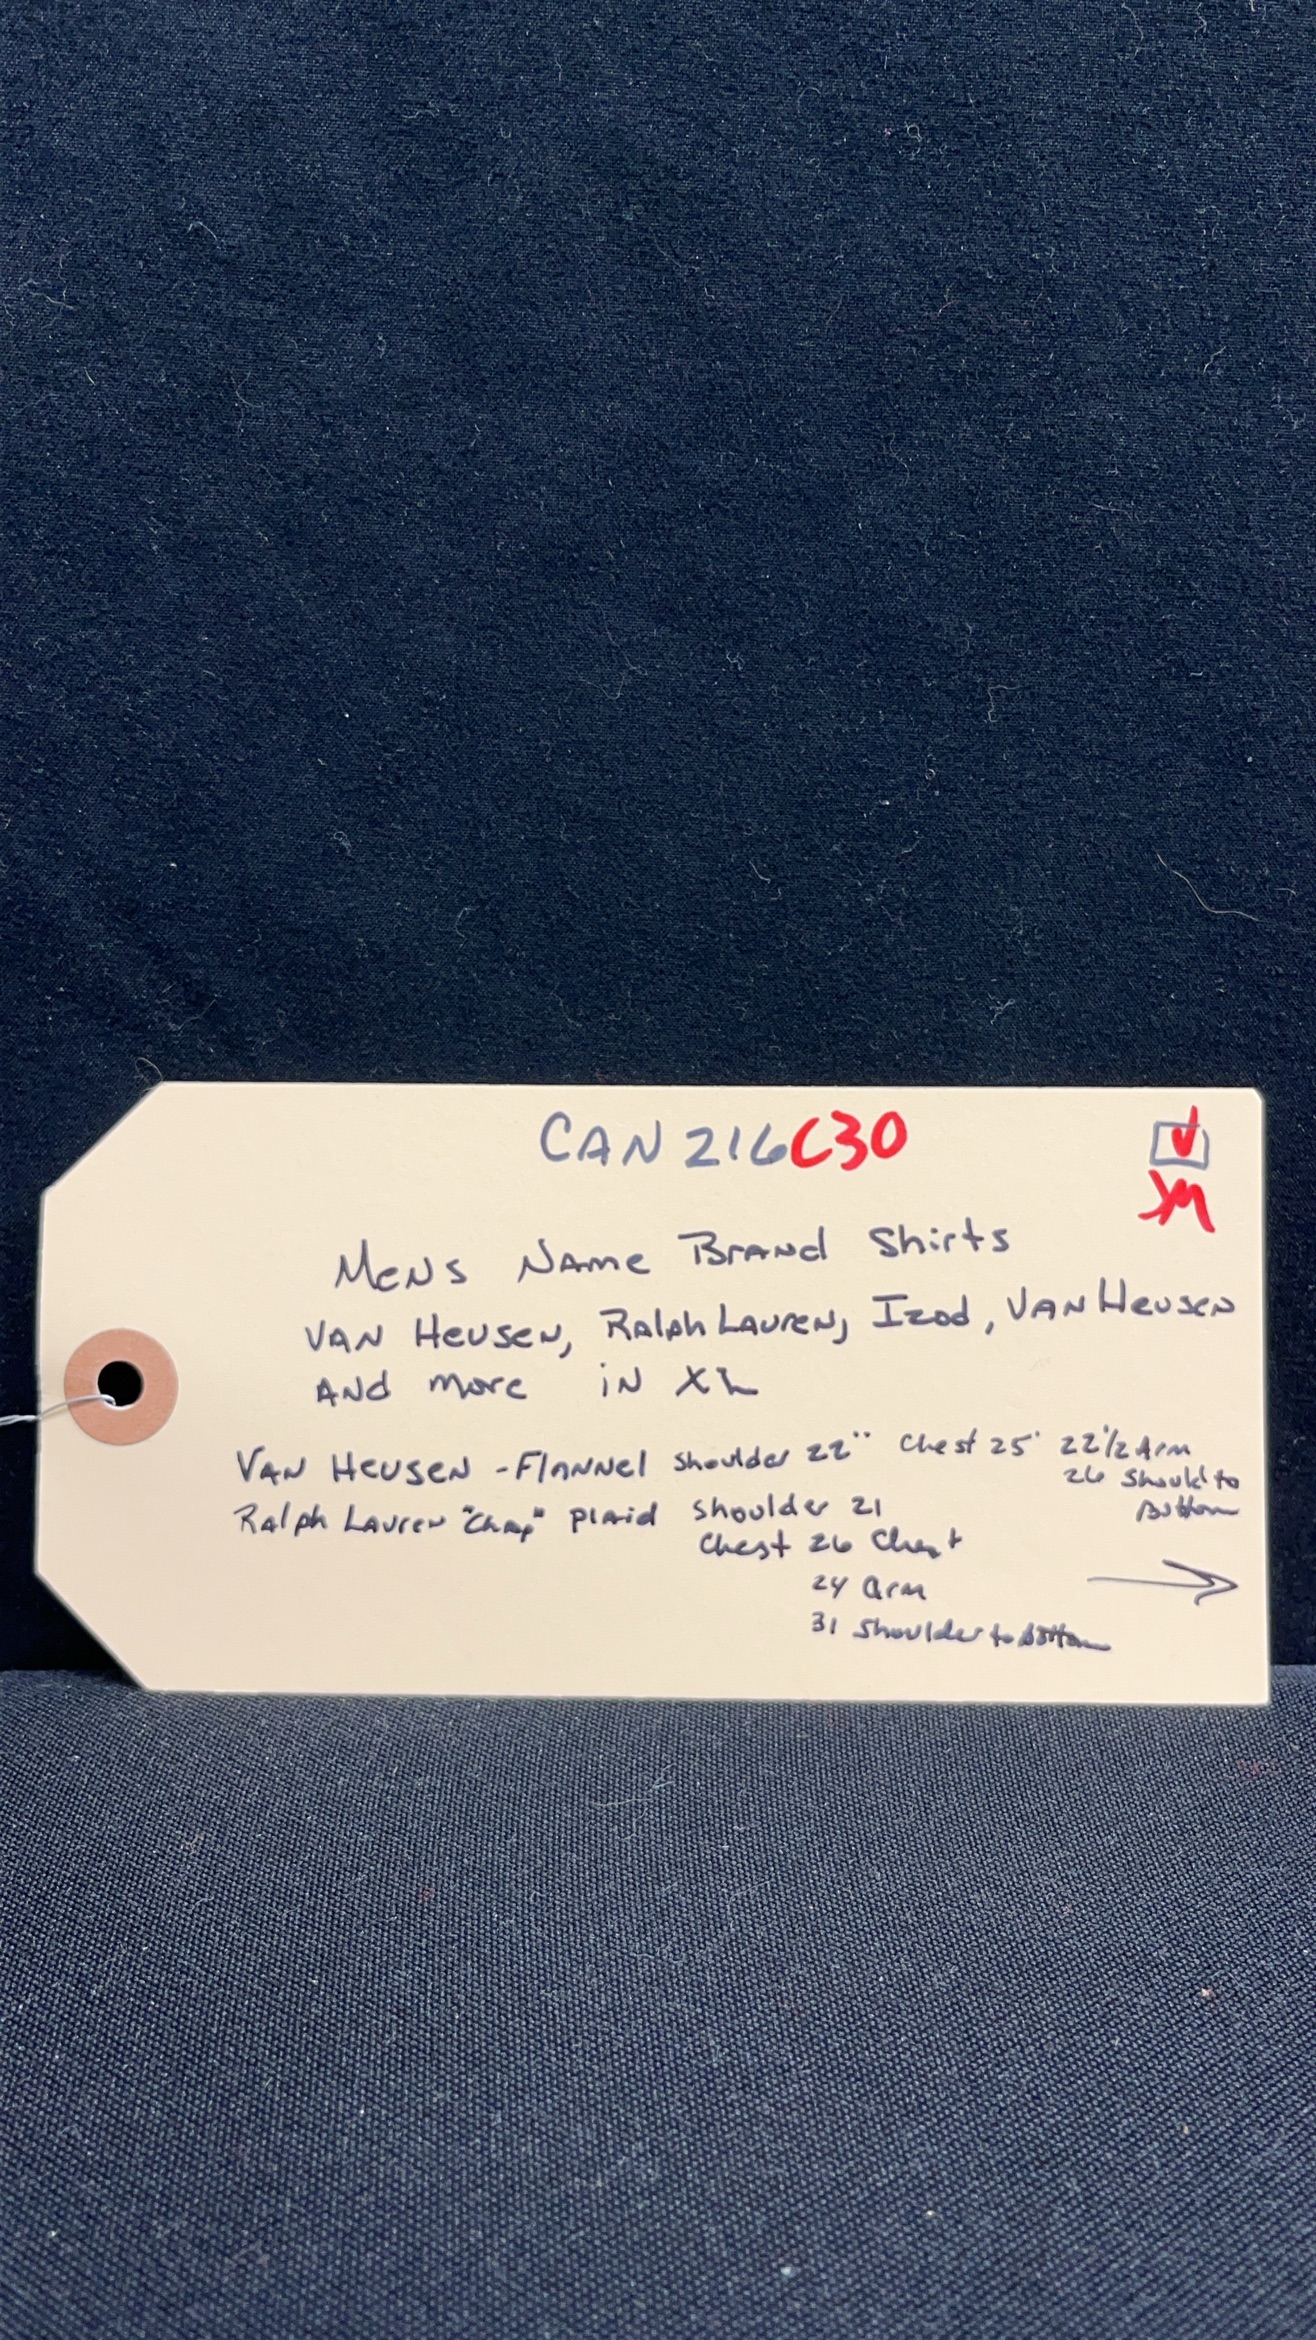 CAN216C30
Mens Name Brand Shirts
VAN HeuseN, Ralph LaureN, Izod, VAN HeuseN
ANd more iN XL
VAN HeuseN - Flannel shoulder 22" Chest 25' 22 1/2 Arm
26 Should to
Bottom
Ralph Lauren "Chap" Plaid shoulder 21
Chest 26 Chest
24 Arm
31 Shoulder to bottom